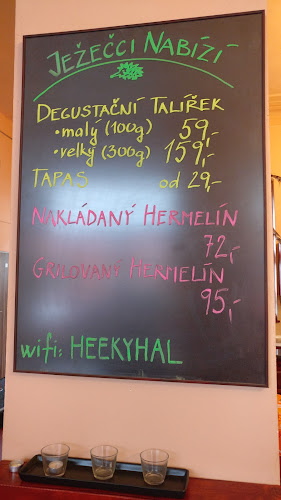 JEŽEČCI NABÍZÍ
DEGUSTAČNÍ TALÍŘEK
• malý (100g) 59,-
• velký (300g) 159,-
TAPAS od 29,-
NAKLÁDANÝ HERMELÍN
72,-
GRILOVANÝ HERMELÍN
95,-
wifi: HEEKYHAL